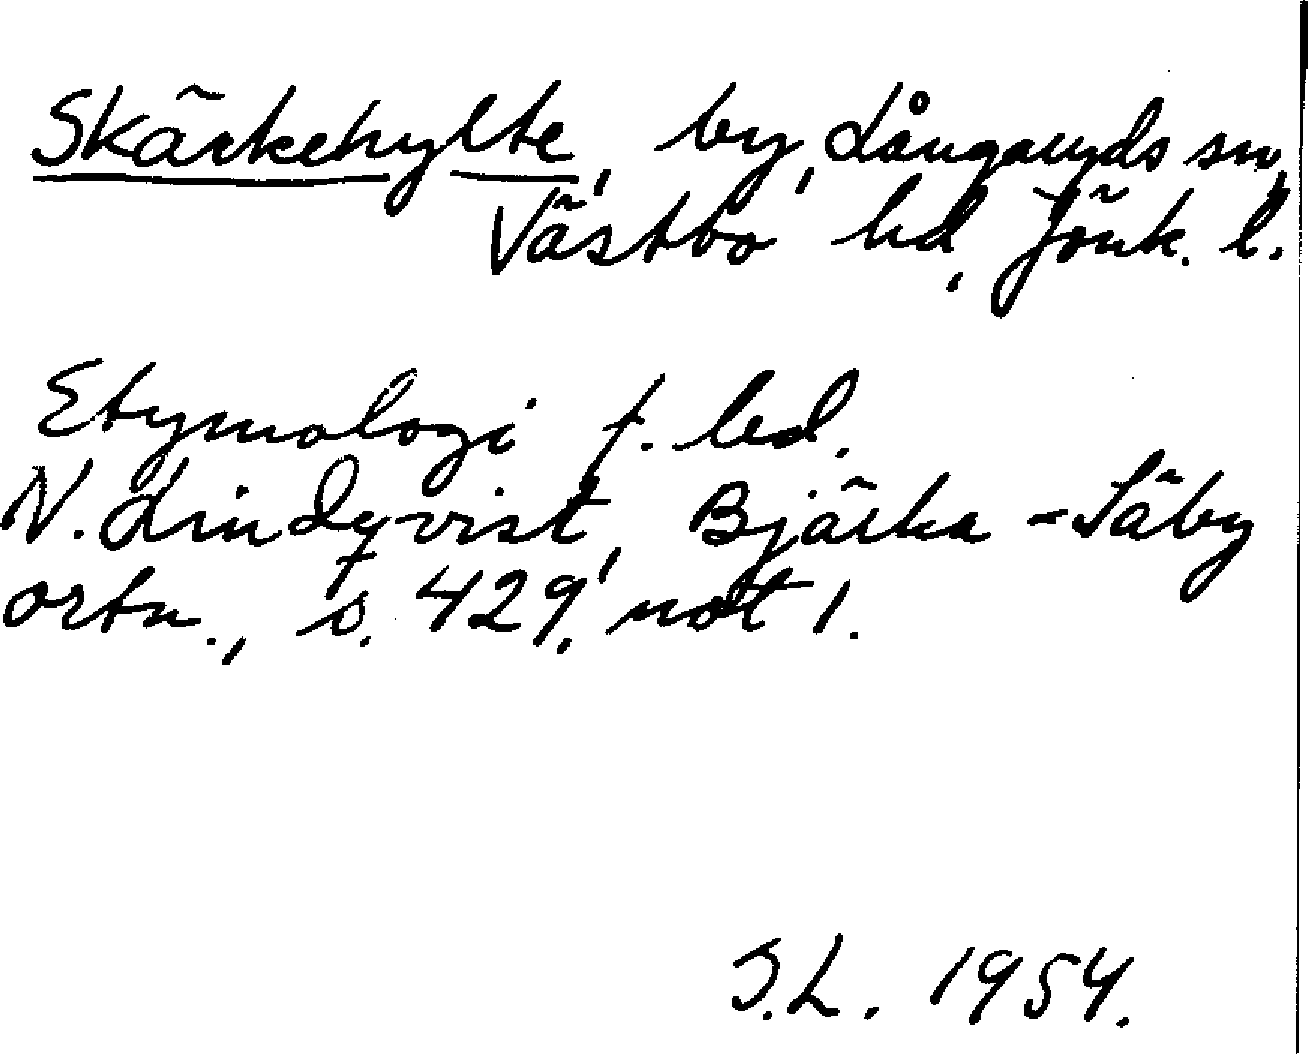 Skärkehylte, by, Långaryds sn,
Västbo hd, Jönk. l.
Etymologi f. led.
N. Lindqvist, Bjärka-Säby
ortn., s. 429, not 1.
I.L. 1954.